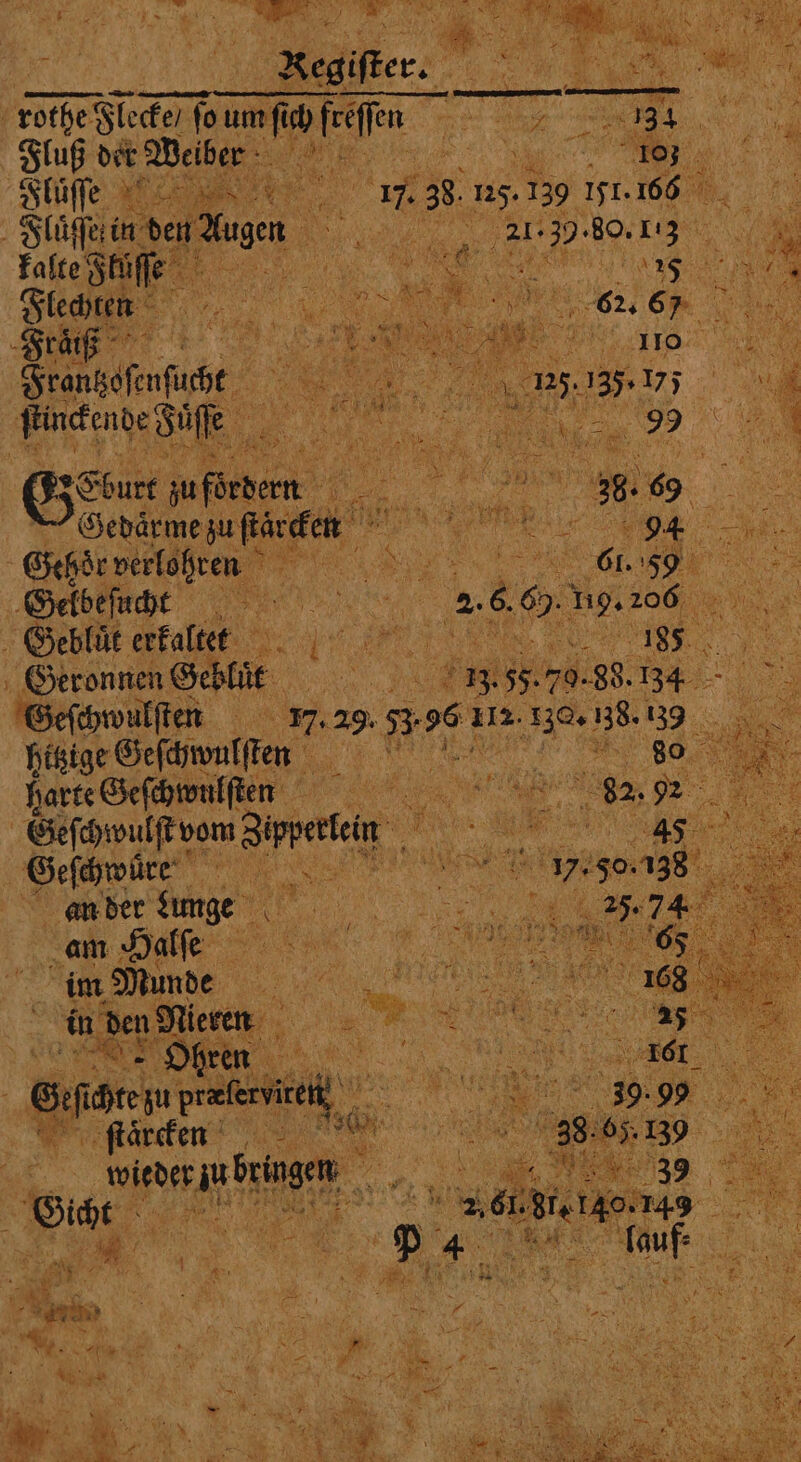 Regiſter.
rothe Flecke/ ſo um ſich freſſen 134
Fluß der Weiber 103
Fluͤſſe 17. 38. 125. 139 151. 166
Fluͤſſe in den Augen 21. 39. 80. 113
kalte Fluͤſſe 25
Flechten 62. 67
Fraͤiß 110
Frantzoſenſucht 125. 135. 175
ſtinckende Fuͤſſe 99
GEburt zu foͤrdern 38. 69
Gedaͤrme zu ſtaͤrcken 94
Gehoͤr verlohren 61. 159
Gelbeſucht 2. 6. 69. 119. 206
Gebluͤt erkaltet 185
Geronnen Gebluͤt 13. 55. 79. 88. 134
Geſchwulſten 17. 29. 53. 96 112. 130. 138. 139
hitzige Geſchwulſten 80
harte Geſchwulſten 82. 92
Geſchwulſt vom Zipperlein 45
Geſchwuͤre 17. 50. 138
an der Lunge 25. 74
am Halſe 65
im Munde 168
in den Nieren 25
- Ohren 161
Geſichte zu præſerviren 39. 99
ſtaͤrcken 38. 65. 139
wieder zu bringen 39
Gicht 2. 61. 81. 140. 149
P 4 lauf⸗